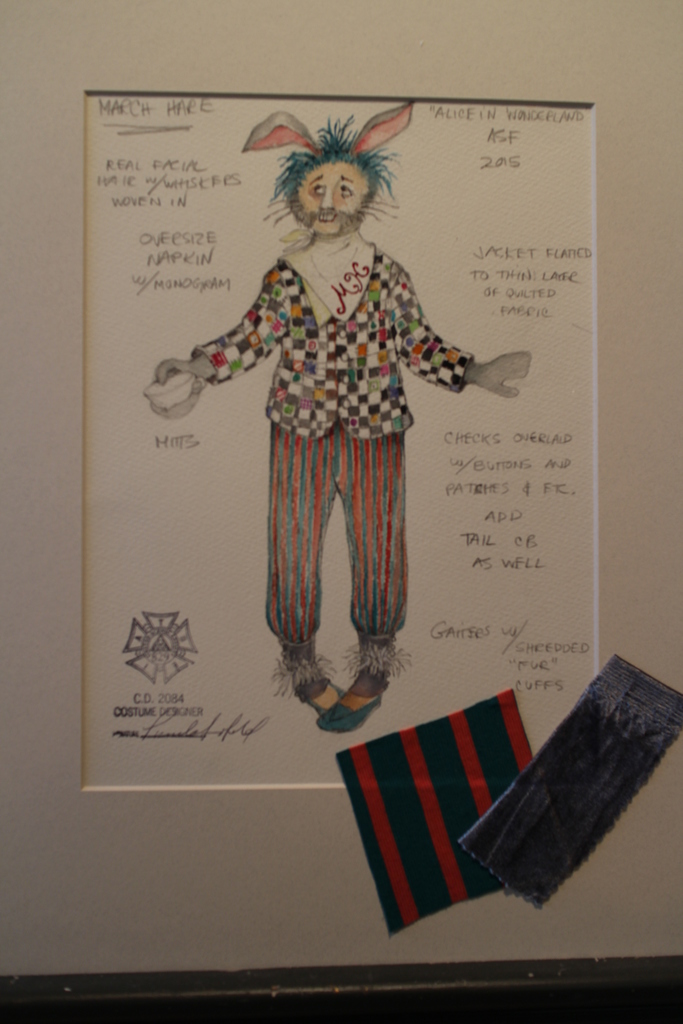 MARCH HARE
"ALICE IN WONDERLAND
ASF
2015
REAL FACIAL
HAIR W/WHISKERS
WOVEN IN
OVERSIZE
NAPKIN
W/MONOGRAM
MH
JACKET FLATTED
TO THIN LAYER
OF QUILTED
FABRIC
MITTS
CHECKS OVERLAID
W/BUTTONS AND
PATCHES & ETC.
ADD
TAIL CB
AS WELL
GAITERS W/
SHREDDED
"FUR"
CUFFS
C.D. 2084
COSTUME DESIGNER